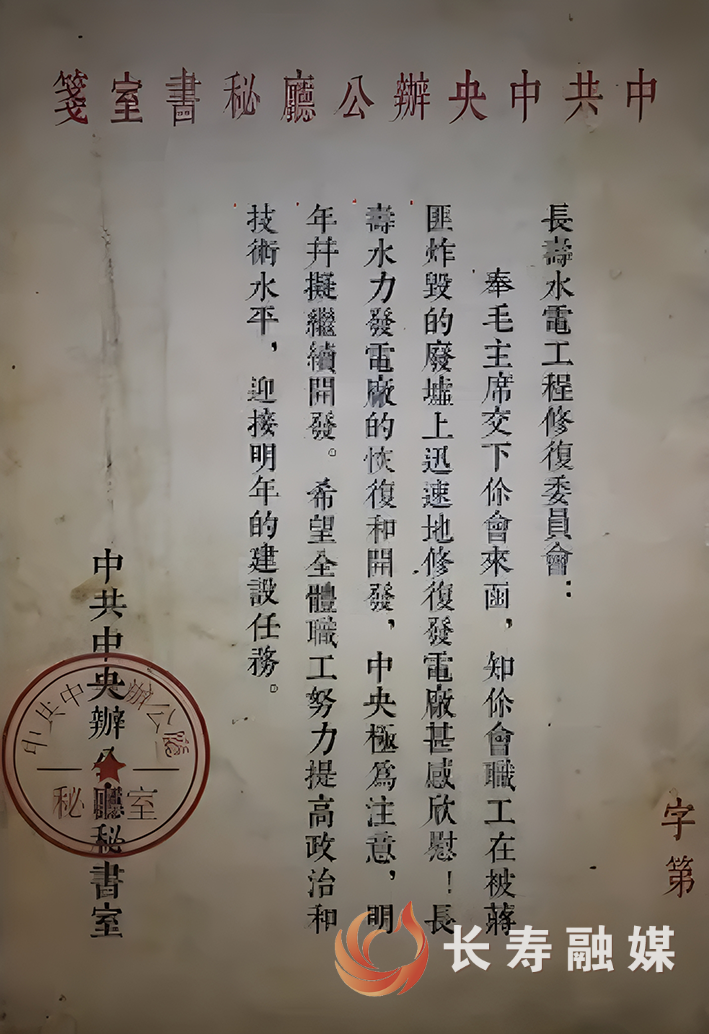 中共中央辦公廳秘書室箋
長壽水電工程修復委員會：
奉毛主席交下你會來函，知你會職工在被蔣
匪炸毀的廢墟上迅速地修復發電廠甚感欣慰！長
壽水力發電廠的恢復和開發，中央極爲注意，明
年幷擬繼續開發。希望全體職工努力提高政治和
技術水平，迎接明年的建設任務。
中共中央辦公廳秘書室
中共中央辦公廳
秘書室
字第
长寿融媒